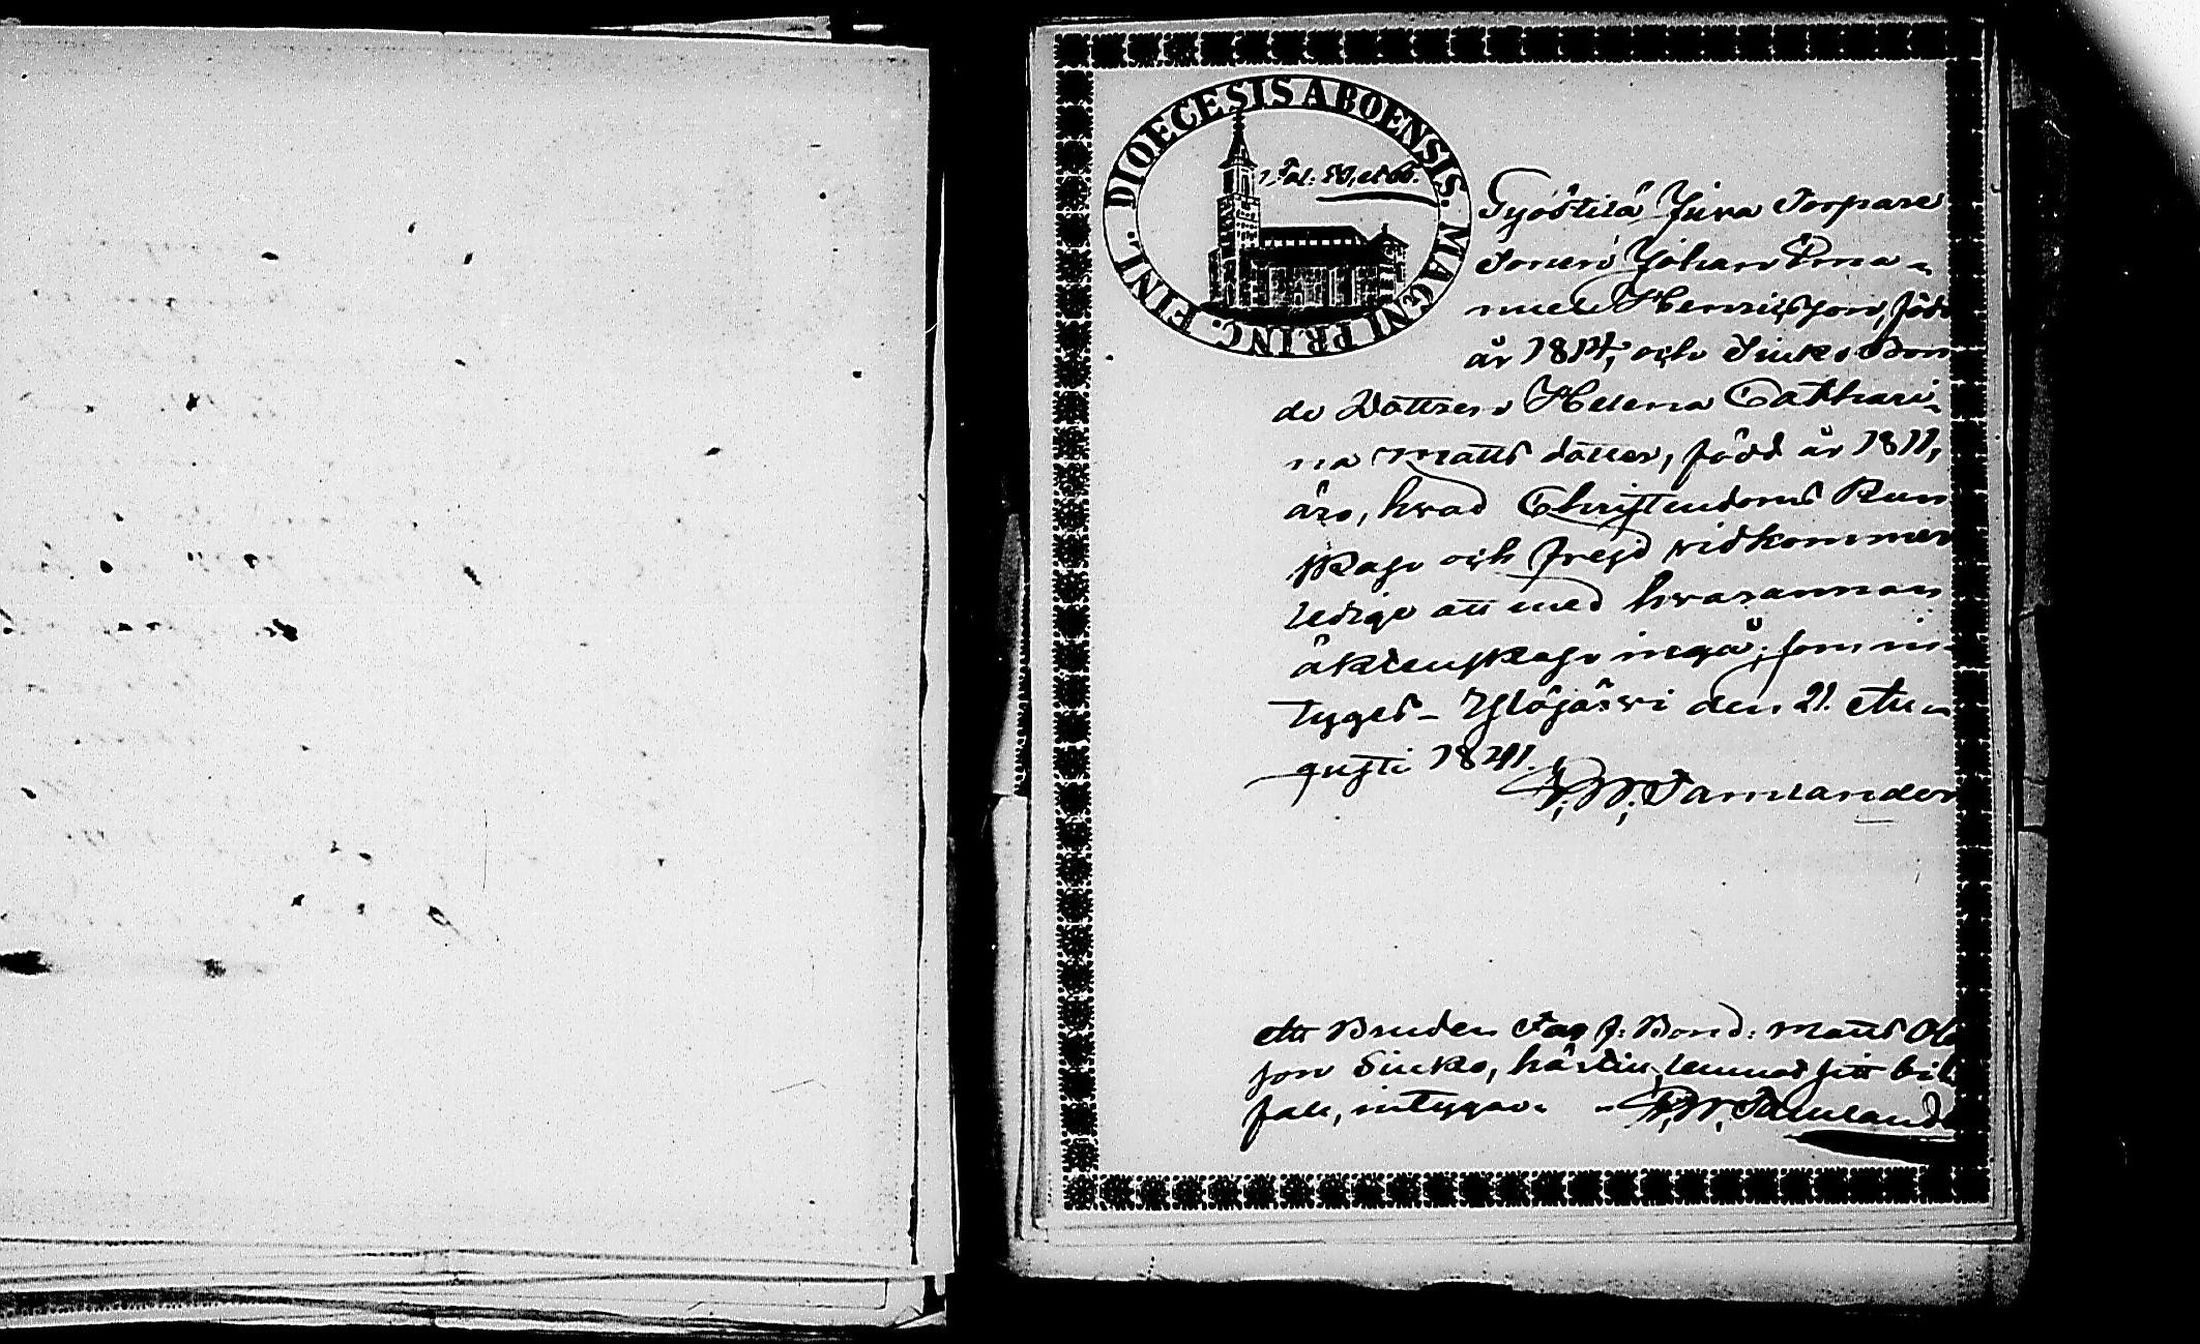 DIOECESIS ABOENSIS. MAGNI PRINC. FINL.
Fol:
Työstilä Jura Torpare
Sonen Johan Ema-
nuel Henriksson, född
år 1814, och Siuko Bon
de Dottren Helena Cathari-
na Matts dotter, född år 1811,
äro, hvad Christendoms Kun
skap och frejd vidkommer
ledige att med hvarannan
äktenskap ingå; som in-
tygas – Ylöjärvi den 21. Au-
gusti 1841.
F. W. Tamlander
Att Brudens Far f: Bond: Matts
son Siuko, härtill lemnat sitt bi
fall, intygar. F. W. Tamlande